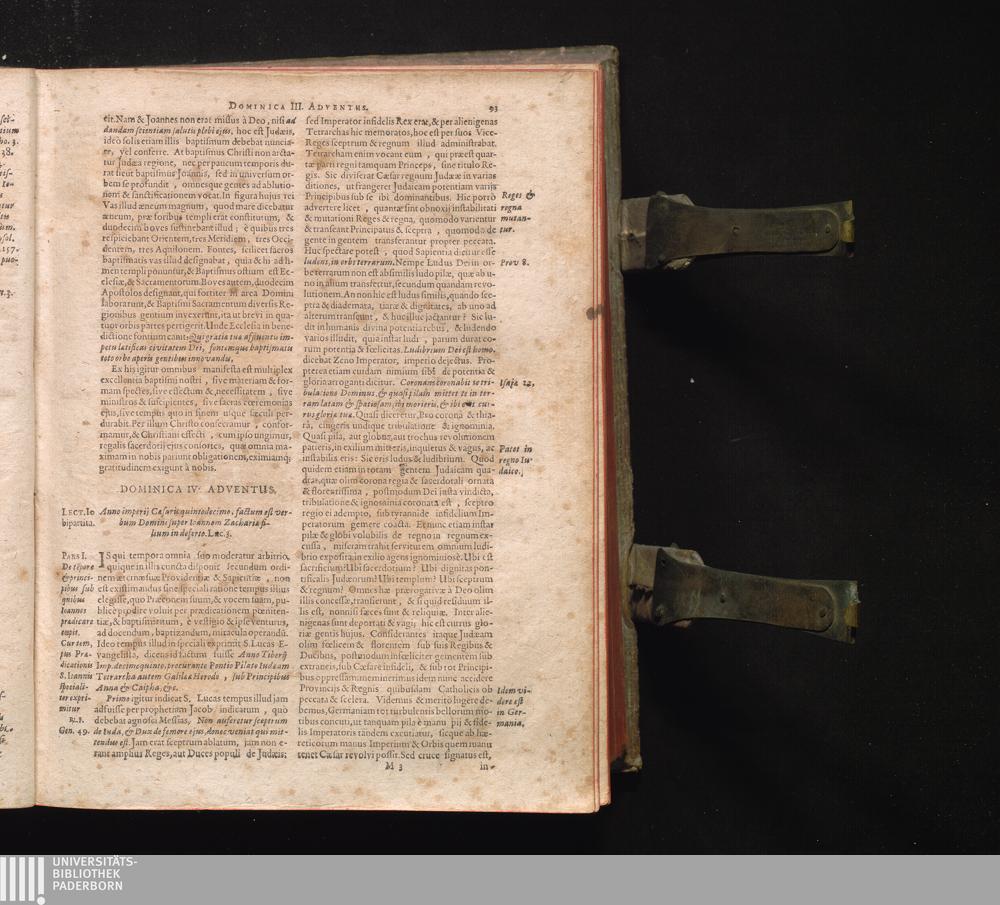 DOMINICA III. ADVENTUS.
93
eit. Nam & Joannes non erat missus à Deo, nisi ad
dandam scientiam salutis plebi ejus, hoc est Judæis,
ideò solis etiam illis baptismum debebat nuncia-
re, vel conferre. At baptismus Christi non arcta-
tur Judææ regione, nec per paucum temporis du-
rat sicut baptismus Joannis, sed in universum or-
bem se profundit, omnesque gentes ad ablutio-
nem & sanctificationem vocat. In figura hujus rei
Vas illud æneum magnum, quod mare dicebatur
æneum, præ foribus templi erat constitutum, &
duodecim boves sustinebant illud; è quibus tres
respiciebant Orientem, tres Meridiem, tres Occi-
dentem, tres Aquilonem. Fontes, scilicet sacros
baptismatis vas illud designabat, quia & hi ad li-
men templi ponuntur, & Baptismus ostium est Ec-
clesiæ, & Sacramentorum. Boves autem, duodecim
Apostolos designant, qui fortiter in area Domini
laborarunt, & Baptismi Sacramentum diversis Re-
gionibus gentium invexerunt, ita ut brevi in qua-
tuor orbis partes pertigerit. Unde Ecclesia in bene-
dictione fontium canit: Qui gratiæ tuæ affluentis im-
petu lætificas civitatem Dei, fontemque baptismatis
toto orbe aperis gentibus innovandis.
Ex his igitur omnibus manifesta est multiplex
excellentia baptismi nostri, sive materiam & for-
mam spectes, sive effectum & necessitatem, sive
ministros & suscipientes, sive sacras cæremonias
ejus, sive tempus quo in finem usque sæculi per-
durabit. Per illum Christo consecramur, confor-
mamur, & Christiani effecti, cum ipso ungimur,
regalis sacerdotii ejus consortes, quæ omnia ma-
ximam in nobis pariunt obligationem, eximiamq;
gratitudinem exigunt à nobis.
DOMINICA IV. ADVENTUS.
LECT. I.
bipartita.
Anno imperij Cæsaris quintodecimo, factum est ver-
bum Domini super Ioannem Zachariæ fi-
lium in deserto. Luc. 3.
PARS I.
De tempore
& princi-
pibus sub
quibus
Ioannes
prædicare
cœpit.
Cur tem-
pus Præ-
dicationis
S. Ioannis
speciali-
ter expri-
mitur
Gen. 49.
IS qui tempora omnia suo moderatur arbitrio,
quique in illis cuncta disponit secundum ordi-
nem æternæ suæ Providentiæ & Sapientiæ, non
est existimandus sine speciali ratione tempus illius
elegisse, quo Præconem suum, & vocem suam, pu-
blicè prodire voluit per prædicationem pœniten-
tiæ, & baptismum, è vestigio & ipse venturus,
ad docendum, baptizandum, miracula operandū.
Ideo tempus illud in speciali exprimit S. Lucas E-
vangelista, dicens id factum fuisse Anno Tiberij
Imp. decimoquinto, procurante Pontio Pilato Iudæam
Tetrarcha autem Galilææ Herode, sub Principibus
Anna & Caipha, &c.
Primo igitur indicat S. Lucas tempus illud jam
adfuisse per prophetiam Jacob indicatum, quò
debebat agnosci Messias, Non auferetur sceptrum
de Iuda, & Dux de femore ejus, donec veniat qui mit-
tendus est. Jam erat sceptrum ablatum, jam non e-
rant amplius Reges, aut Duces populi de Judæis;
sed Imperator infidelis Rex erat, & per alienigenas
Tetrarchas hic memoratos, hoc est per suos Vice-
Reges sceptrum & regnum illud administrabat.
Tetrarcham enim vocant eum, qui præest quar-
tæ parti regni tamquam Princeps, sine titulo Re-
gis. Sic diviserat Cæsar regnum Judææ in varias
ditiones, ut frangeret Judaicam potentiam variis
Principibus sub se ibi dominantibus. Hic porrò
advertere licet, quantæ sint obnoxij instabilitati
& mutationi Reges & regna, quomodo varientur
& transeant Principatus & sceptra, quomodo de
gente in gentem transferantur propter peccata.
Huc spectare potest, quod Sapientia dicitur esse
ludens, in orbe terrarum. Nempe Ludus Dei in or-
be terrarum non est absimilis ludo pilæ, quæ ab u-
no in alium transfertur, secundum quandam revo-
lutionem. An non hic est ludus similis, quando sce-
ptra & diademata, tiaræ & dignitates, ab uno ad
alterum transeunt, & huc illuc jactantur? Sic lu-
dit in humanis divina potentia rebus, & ludendo
varios illudit, quia instar ludi, parum durat co-
rum potentia & fœlicitas. Ludibrium Dei est homo,
dicebat Zeno Imperator, imperio dejectus. Pro-
pterea etiam cuidam nimium sibi de potentia &
gloria arroganti dicitur. Coronans coronabit te tri-
bulatione Dominus, & quasi pilam mittet te in ter-
ram latam & spatiosam, ibi morieris, & ibi erit cur-
rus gloriæ tuæ. Quasi diceretur, Pro corona & thia-
rà, cingeris undique tribulatione & ignominia.
Quasi pila, aut globus, aut trochus revolutionem
patieris, in exilium mitteris, inquietus & vagus, ac
instabilis eris: Sic eris ludus & ludibrium. Quod
quidem etiam in totam gentem Judaicam qua-
drat, quæ olim corona regia & sacerdotali ornata
& florentissima, postmodum Dei justa vindicta,
tribulatione & ignominia coronata est, sceptro
regio ei adempto, sub tyrannide infidelium Im-
peratorum gemere coacta. Et nunc etiam instar
pilæ & globi volubilis de regno in regnum ex-
cussa, miseram trahit servitutem omnium ludi-
brio exposita in exilio agens ignominiosè. Ubi est
sacrificium? Ubi sacerdotium? Ubi dignitas pon-
tificalis Judæorum? Ubi templum? Ubi sceptrum
& regnum? Omnes hæ prærogativæ à Deo olim
illis concessæ, transierunt, & si quid residuum il-
lis est, nonnisi fæces sunt & reliquiæ. Inter alie-
nigenas sunt deportati & vagi; hic est currus glo-
riæ gentis hujus. Considerantes itaque Judæam
olim fœlicem & florentem sub suis Regibus &
Ducibus, postmodum infœliciter gementem sub
extraneis, sub Cæsare infideli, & sub tot Principi-
bus oppressam, meminerimus idem nunc accidere
Provinciis & Regnis quibusdam Catholicis ob
peccata & scelera. Videmus & meritò lugere de-
bemus, Germaniam tot turbulentis bellorum mo-
tibus concuti, ut tanquam pila è manu pij & fide-
lis Imperatoris tandem excutiatur, sicque ab hæ-
reticorum manus Imperium & Orbis quem manu
tenet Cæsar revolvi possit. Sed cruce signatus est,
M 3
in-
Reges &
regna
mutan-
tur.
Prov 8.
Isaiæ 22.
Patet in
regno Iu-
daico.
Idem vi-
dere est
in Ger-
mania.
UNIVERSITÄTS-
BIBLIOTHEK
PADERBORN